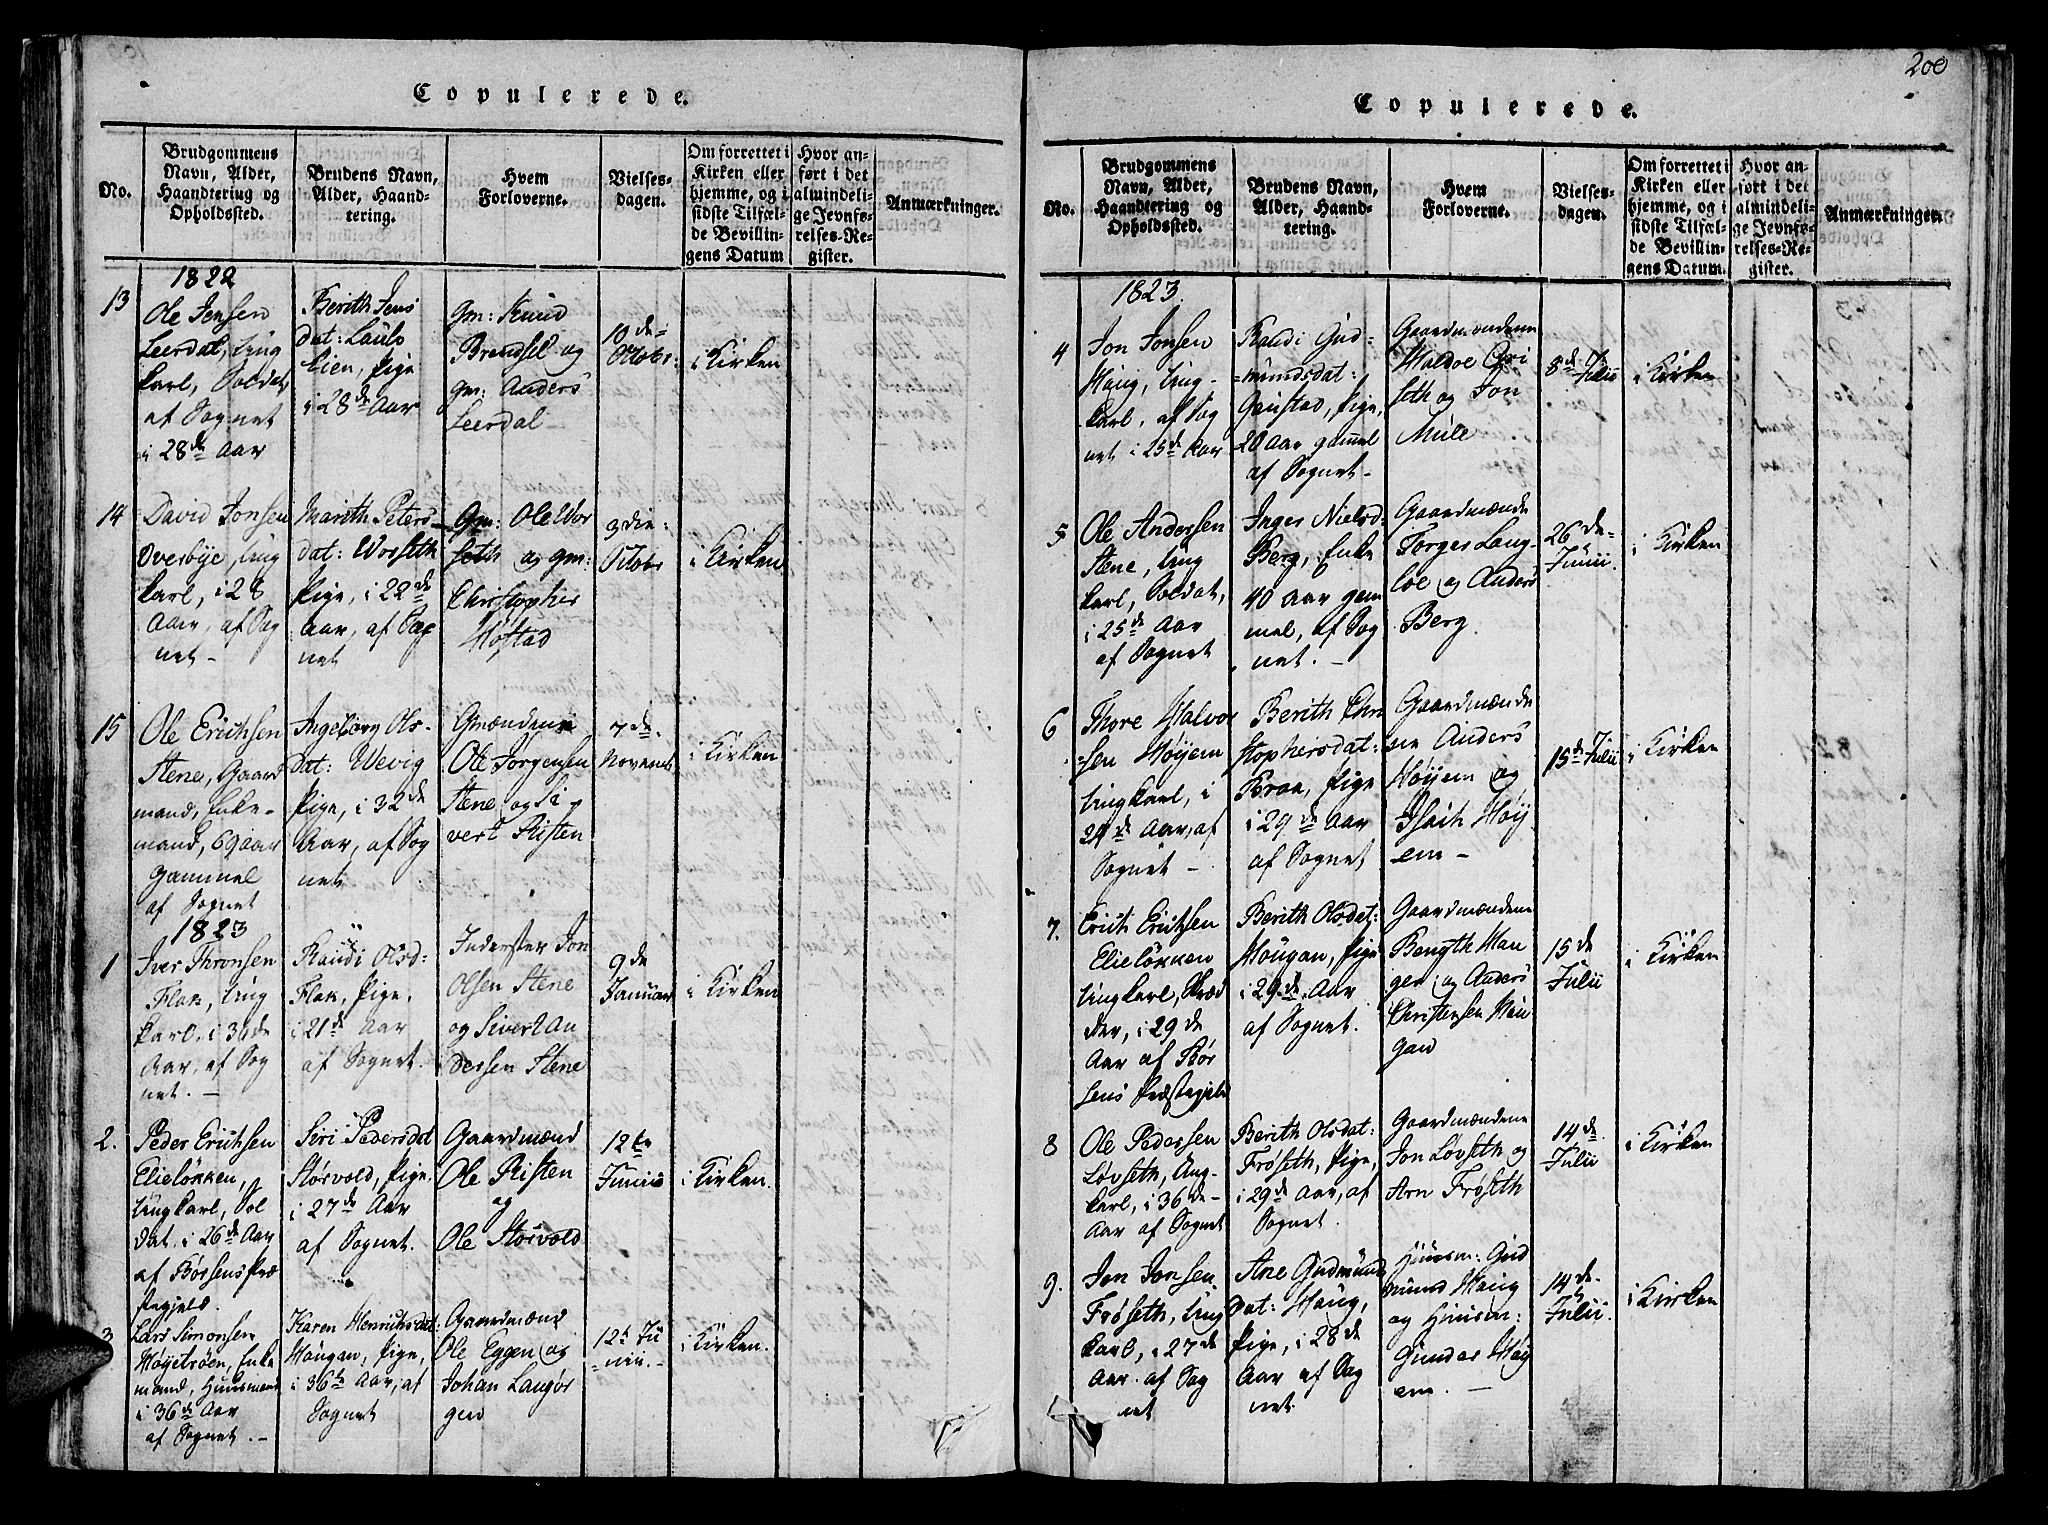 Copulerede.
No.
Brudgommens
Navn, Alder,
Haandtering og
Opholdssted.
Brudens Navn,
Alder, Haand-
tering.
Hvem
Forloverne.
Vielses-
dagen.
Om forrettet i
Kirken eller
hjemme, og i
sidste Tilfæl-
de Bevillin-
gens Datum
Hvor an-
ført i det
almindeli-
ge Jevnfø-
relses-Re-
gister.
Anmærkninger.
1822
13
Ole Jensen
Leerdal, Ung
karl, Soldat,
af Sognet
i 28de Aar
Berith Jens
dat: Lauls
Eien, Pige
i 28de Aar
Gm: Knud
Brendsel og
gm: Anders
Leerdal
10de
Octobr:
i Kirken
14
David Jonsen
Overbye, Ung
karl, i 28
Aar, af Sog
net
Marith Peters
dat: Wosseth
Pige, i 22de
Aar, af Sog
net
Gm: Ole Wor
seth og gm:
Christopher
Høstad
3die
Octobr
i Kirken
15
Ole Erichsen
Stene, Gaard
mand, Enke-
mand, 69 aar
gammel
af Sognet
Ingeborg Ols-
dat: Wevig
Pige, i 32de
Aar, af Sog
net
Gmændene
Ole Jørgensen
Stene og Si
vert Risten
7de
Novemb
i Kirken
1823
1
Iver Thronsen
Flak, Ung
karl, i 30de
Aar, af Sog
net. -
Randi Olsd:
Flak, Pige,
i 21de Aar
af Sognet.
Inderster Jon
Olsen Stene
og Sivert An
dersen Stene
9de
Januar
i Kirken
2.
Peder Erichsen
Elieløkken,
Ungkarl, Sol
dat. i 26de Aar
af Børsens Præ
stegjeld.
Siri Pedersdat
Størvold, Pige.
i 27de Aar
af Sognet.
Gaardmænd
Ole Risten
og
Ole Størvold
12te
Junii
i Kirken.
3
Lars Simonsen
Høyetrøen, Enke
mand, Huusmand
i 36de Aar
af Sognet. -
Karen Henrichsdat:
Hougan, Pige,
i 36te Aar, af
Sognet
Gaardmænd
Ole Eggen og
Johan Langør
gen
12te Ju
nii.
i Kirken.
200
Copulerede.
No.
Brudgommens
Navn, Alder,
Haandtering og
Opholdssted.
Brudens Navn,
Alder, Haand-
tering.
Hvem
Forloverne.
Vielses-
dagen.
Om forrettet i
Kirken eller
hjemme, og i
sidste Tilfæl-
de Bevillin-
gens Datum.
Hvor an-
ført i det
almindeli-
ge Jevnfø-
relses-Re-
gister.
Anmærkninger.
1823.
4
Jon Jonsen
Haug, Ung-
karl, af Sog
net i 25de Aar
Randi Gud-
mundsdat:
Gaustad, Pige,
20 Aar gammel
af Sognet
Gaardmændene
Haldoe Gri
seth og Jon
Mule
8de Julii
i Kirken
5
Ole Andersen
Stene, Ung
karl, Soldat,
i 25de Aar
af Sognet
Inger Nielsd:
Berg, Enke
40 aar gam
mel, af Sog
net. -
Gaardmænde
Torger Lang-
loe og Anders
Berg.
26de
Junii.
i Kirken
6
Thore Halvor
sen Høyem
Ungkarl, i
24de Aar, af
Sognet -
Berith Chri
stophersdat:
Braa, Pige
i 29de Aar
af Sognet
Gaardmænde
ne Anders
Høyem og
Isach Høy
em -
15de Julii
i Kirken
7.
Erich Erichsen
Elieløkken
Ungkarl, Skræd
der, i 29de
Aar af Bør
sens Præstegjeld
Berith Olsdat:
Hougan, Pige
i 29de Aar
af Sognet.
Gaardmændene
Bength Han
ger og Anders
Christensen Hau
gan
15de
Julii
i Kirken
8
Ole Pedersen
Løvseth, Ung-
karl, i 36de
Aar af Sognet
Berith Olsdat:
Frøseth, Pige,
i 29de Aar, af
Sognet.
Gaardmændene
Jon Løvseth og
Arn Frøseth
14de
Julii
i Kirken
9.
Jon Jonsen
Frøseth, Ung
karl, i 27de
Aar. af Sog
net
Ane Gudmunds
dat: Haug,
Pige, i 28de
Aar af Sog
net.
Huusm: Gud
mund Haug
og Huusm:
Gunder Høy
em. -
14de
Julii.
i Kirken